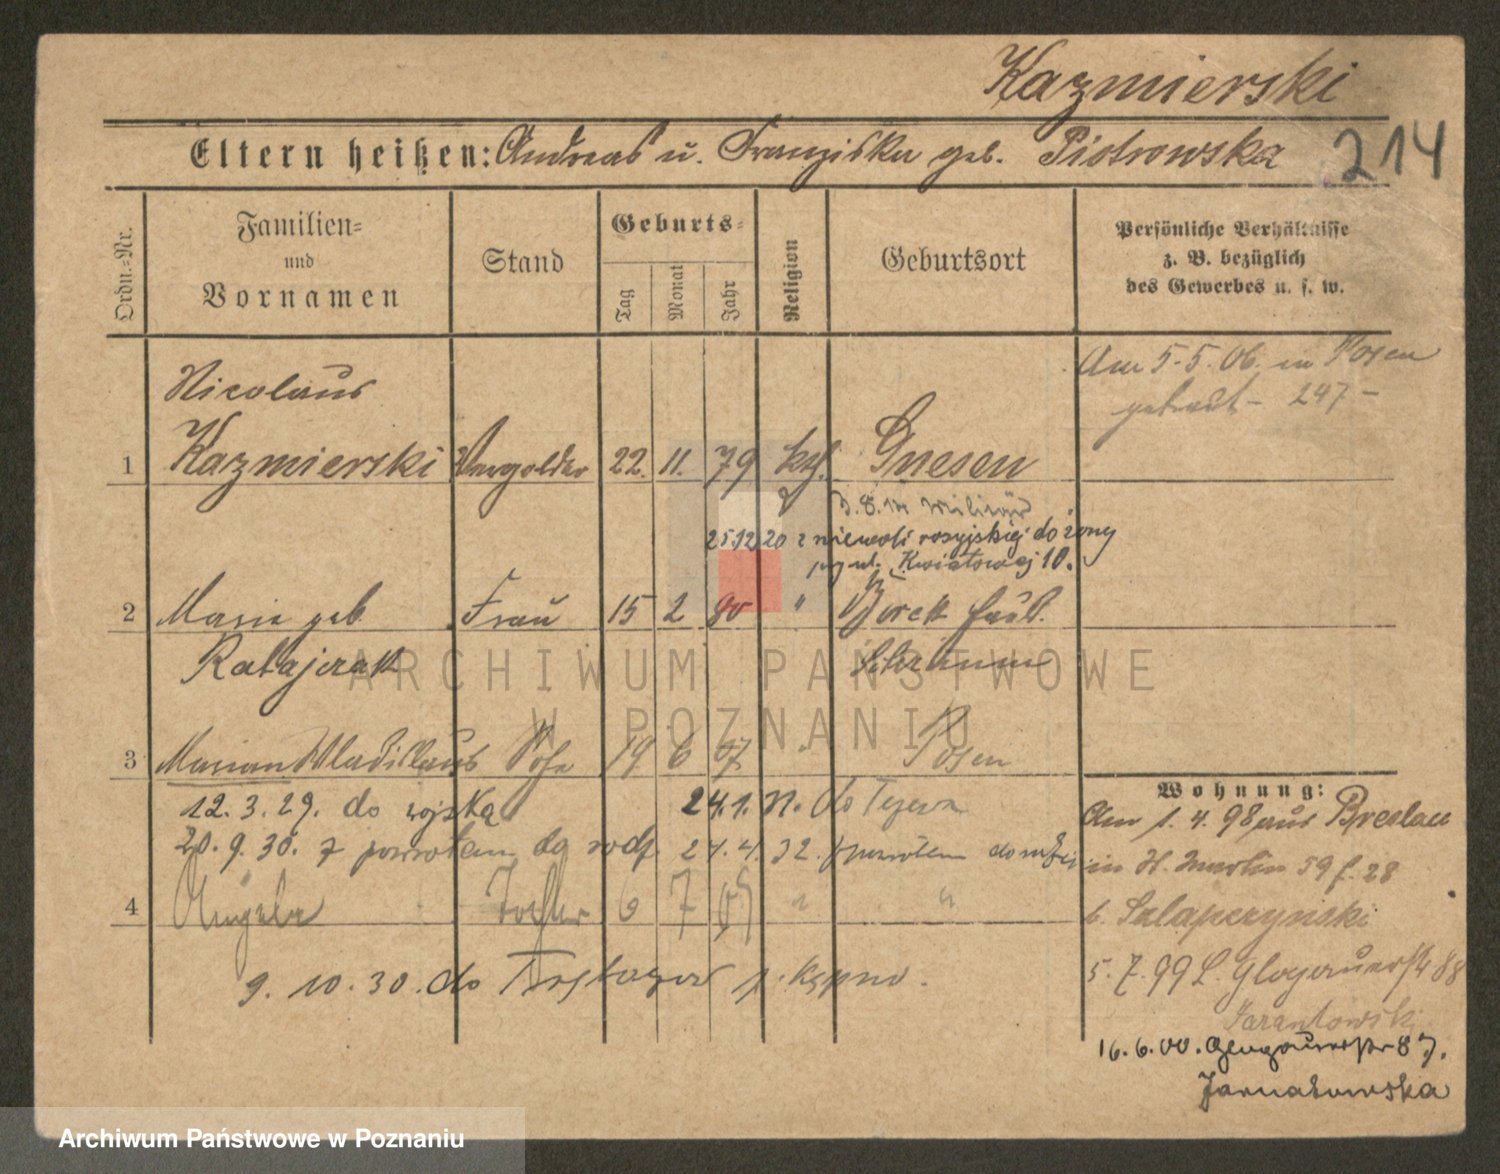 Kazmierski
Eltern heißen: Andreas u. Franziska geb. Piotrowska
214
Ordn.-Nr.
Familien-
und
Vornamen
Stand
Geburts-
Tag
Monat
Jahr
Religion
Geburtsort
Persönliche Verhältnisse
z. B. bezüglich
des Gewerbes u. s. w.
Am 5.5.06. in Posen
getraut - 247 -
Nicolaus
1 Kazmierski Vergolder 22. 11. 79 kth. Gnesen
3.8. Militär
25.12 20 z niewoli rosyjskiej do żony
ul. Kwiatowej 10.
2 Marie geb. Frau 15 2 80 "
Ratajczak Schrimm
3 Marian Wladislaus Sohn 19 6 07. " Posen
12. 3. 29. do wojska 24.1. do Tczewa
20. 9. 30. z powrotem do rodz. 32. powrotem do
4 Angela Tochter 6 7 09 " "
9. 10. 30. do p. Kępno.
Wohnung:
Am 1. 4. 98 aus Breslau
in St. Martin 59 f. 28
b. Szlapczynski
5. 7. 99 L. Glogauerstr 88
Jarantowski
16. 6. 00. Glogauerstr 87.
Jarnatowska
ARCHIWUM PAŃSTWOWE
W POZNANIU
Archiwum Państwowe w Poznaniu